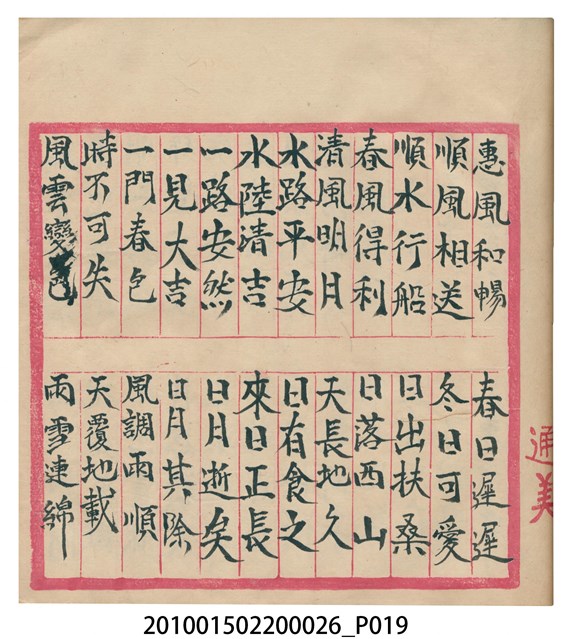 惠風和暢
順風相送
順水行船
春風得利
清風明月
水路平安
水陸清吉
一路安然
一見大吉
一門春色
時不可失
風雲變色
春日遲遲
冬日可愛
日出扶桑
日落西山
天長地久
日有食之
來日正長
日月逝矣
日月其除
風調雨順
天覆地載
雨雪連綿
通美
201001502200026_P019